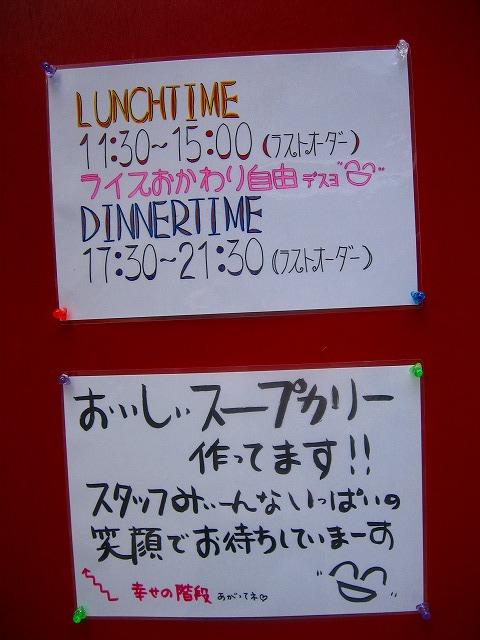 LUNCHTIME
11:30~15:00 (ラストオーダー)
ライスおかわり自由デスヨ
DINNERTIME
17:30~21:30 (ラストオーダー)
おいしいスープカリー
作ってます!!
スタッフみぃーんないっぱいの
笑顔でお待ちしていまーす
幸せの階段 あがってネ♡